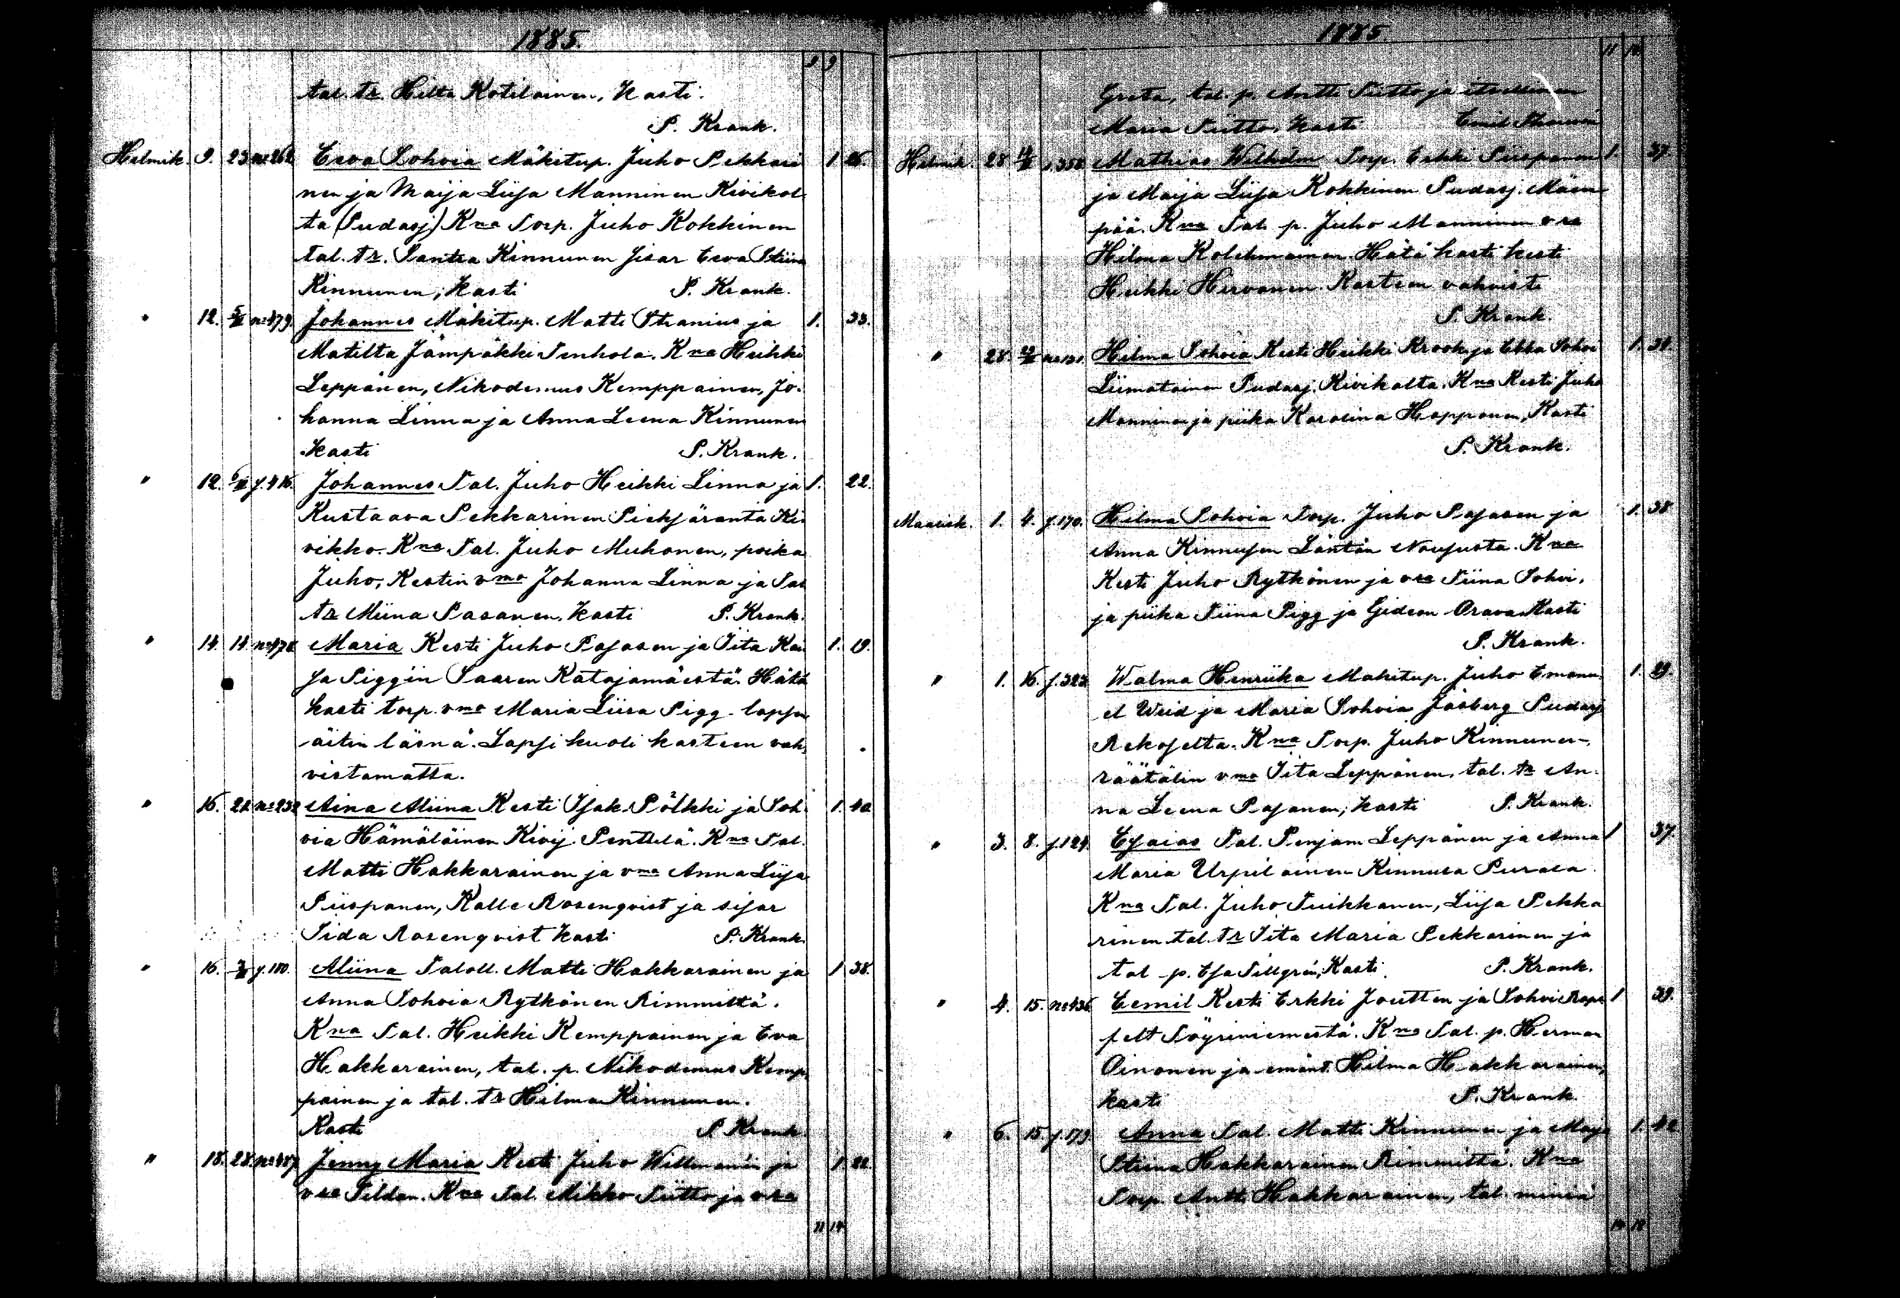 1885.
8 9
tal. tr. Hilta Kotilainen, Kasti.
P. Krank.
Helmik. 9. 23 no 262 Eeva Sohvia Mäkitup. Juho Pekkari 1 26.
nen ja Maija Liisa Manninen Kivikol
ta (Pudasj) Kna Torp. Juho Kokkinen
tal. tr. Santra Kinnunen sisar Eeva Stiina
Kinnunen; Kasti P. Krank.
" 12. no 479. Johannes Mäkitup. Matti Stranius ja 1. 33.
Matilta Jämpäkki Tenhola. Kna Heikki
Leppänen, Nikodemus Kemppainen, Jo-
hanna Linna ja Anna Leena Kinnunen
Kasti P. Krank.
" 12. f. 416. Johannes Tal. Juho Heikki Linna ja 1. 22.
Kustaava Pekkarinen Pieksäranta Ki
vikko. Kna Tal. Juho Muhonen, poika
Juho; Kestin vmo Johanna Linna ja Tal
tr Miina Pasanen, Kasti P. Krank.
" 14. 14. no 478 Maria Kesti Juho Pasasen ja Iita Kai 1. 19.
sa Piggin Saaren Katajamäestä. Hätä
kasti torp. vmo Maria Liisa Pigg lapsen
äitin läsnä. Lapsi kuoli kasteen vah,
vistamatta.
" 15. 21. no 252 Aina Aliina Kesti Isak Pölkki ja Soh 1. 40.
via Hämäläinen Kivij. Penttilä. Kna Tal.
Matti Hakkarainen ja vmo Anna Liisa
Piispanen, Kalle Rosenqvist ja sisar
Iida Rosenqvist Kasti P. Krank.
" 16. f. 180. Aliina Taloll. Matti Hakkarainen ja 1 38.
Anna Sohvia Rytkönen Rimmiltä.
Kna Tal. Heikki Kemppainen ja Eva
Hakkarainen, tal. p. Nikodemus Kemp,
painen ja tal. tr Hilma Kinnunen.
Kasti P. Krank.
" 18. 28. no 487 Jenny Maria Kesti Juho Willmanin ja 1. 22.
vsa Tildan. Kna Tal. Mikko Tiitto ja vsa
11 14
1885
11 14
Greta, tal. p. Antti Tiitto ja itsellinen
Maria Tiitto, Kasti Emil
Helmik. 28 f. 358 Mathias Wilhelm Torp. Erkki Piispanen 1. 37.
ja Maija Liisa Kokkinen Pudasj. Mäen
pää. Kna Tal. p. Juho Manninen vsa
Hilma Kolehmainen. Hätä kasti kesti
Heikki Hirvonen. Kasteen vahvisti
P. Krank.
" 28. no 131. Hilma Sohvia Kesti Heikki Krook ja Ebba Sohvi 1. 31.
Liimatainen Pudasj. Kivikolta. Kna Kesti Juho
Manninen ja piika Karolina Happonen, Kasti
P. Krank.
Maarisk. 1. 4. f. 170. Hilma Sohvia Torp. Juho Pasasen ja 1. 38
Anna Kinnusen Läntän Noususta. Kna
Kesti Juho Rytkönen ja vsa Tiina Sohvi,
ja piika Tiina Pigg ja Gideon Orava Kasti
P. Krank.
" 1. 16. f. 323. Walma Henriika Mäkitup. Juho Emanu 1. 29.
el Weid ja Maria Sohvia Jäsberg Pudasj
Rekoselta. Kna Torp. Juho Kinnunen-,
räätälin vmo Iita Leppänen, tal. tr An-
na Leena Pasanen; Kasti P. Krank.
" 3. 8. f. 124. Esaias Tal. Penjam Leppänen ja Anna 1 37.
Maria Urpilainen Kinnula Purala.
Kna Tal. Juho Tuikkanen, Liisa Pekka
rinen tal. tr Iita Maria Pekkarinen ja
tal. p. Esa Tillgrén, Kasti. P. Krank.
" 4. 15. no 436 Eemil Kesti Erkki Joutten ja Sohvi Rops 1 39.
felt Löyriniemestä. Kna Tal. p. Herman
Oinonen ja emänt. Hilma Hakkarainen,
kasti P. Krank.
" 6. 15 f. 179. Anna Tal. Matti Kinnunen ja Maja 1. 42
Stiina Hakkarainen Rimmiltä. Kna
Torp. Antti Hakkarainen, tal. miniä
14 18